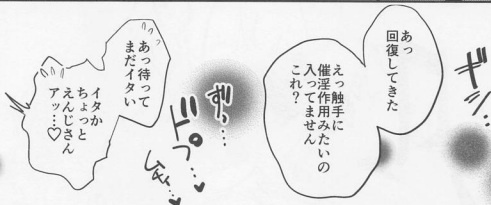 あっ
回復してきた
えっ触手に
催淫作用みたいの
入ってません
これ?
ずっ…
ドプっ…♥
あっ待って
まだイタい
イタか
ちょっと
えんじさん
アッ…♡